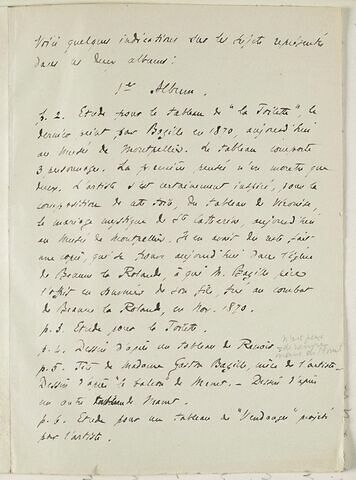 Voici quelques indications sur les sujets représentés
dans ces deux albums :
1er Album.
p. 2. Etude pour le tableau de "La Toilette", le
dernier peint par Bazille en 1870, aujourd'hui
au Musée de Montpellier. Le tableau comporte
3 personnages. La première pensée n'en montre que
deux. L'artiste s'est certainement inspiré, pour la
composition de cette toile, du tableau de Véronèse,
le mariage mystique de Ste Catherine, aujourd'hui
au Musée de Montpellier. Il en avait du reste fait
une copie, qui se trouve aujourd'hui dans l'église
de Beaune la Rolande, à qui M. Bazille père
l'offrit en souvenir de son fils, tué au combat
de Beaune la Rolande, en Nov. 1870.
p. 3. Etude pour la Toilette.
p. 4. Dessin d'après un tableau de Renoir.
n'est pas
de
même de Monet
p. 5. Tête de madame Gaston Bazille, mère de l'artiste.
Dessin d'après le balcon de Manet. - Dessin d'après
un autre tableau de Manet.
p. 6. Etude pour un tableau de "Vendanges" projeté
par l'artiste.